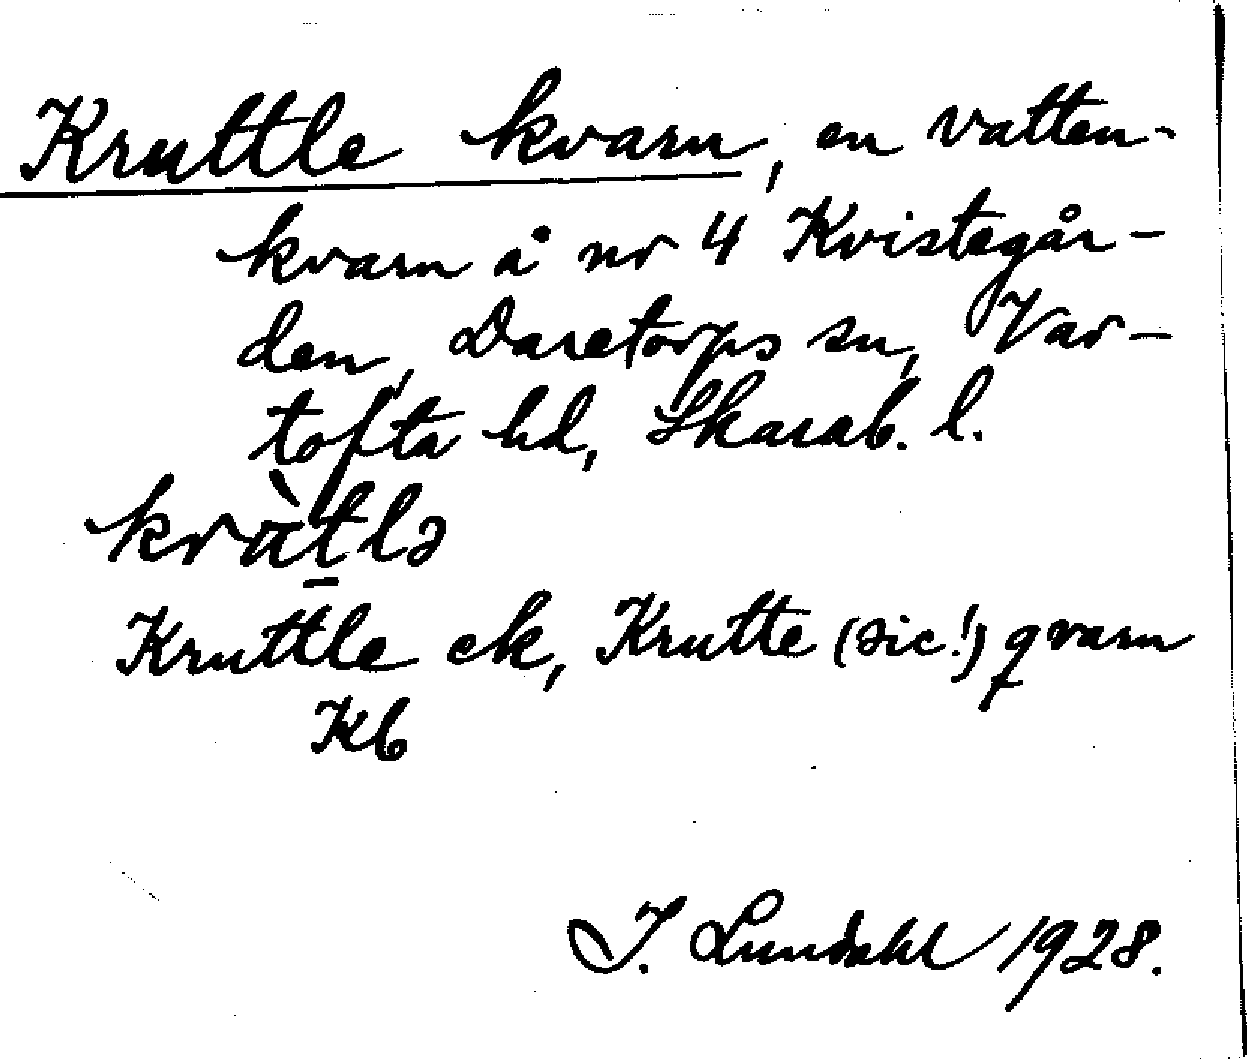 Kruttle kvarn, en vatten-
kvarn å nr 4 Kvistegår-
den, Daretorps sn, Var-
tofta hd, Skarab. l.
kràtlə
Kruttle ek, Krutte (sic!) qvarn
Kb
I. Lundahl 1928.